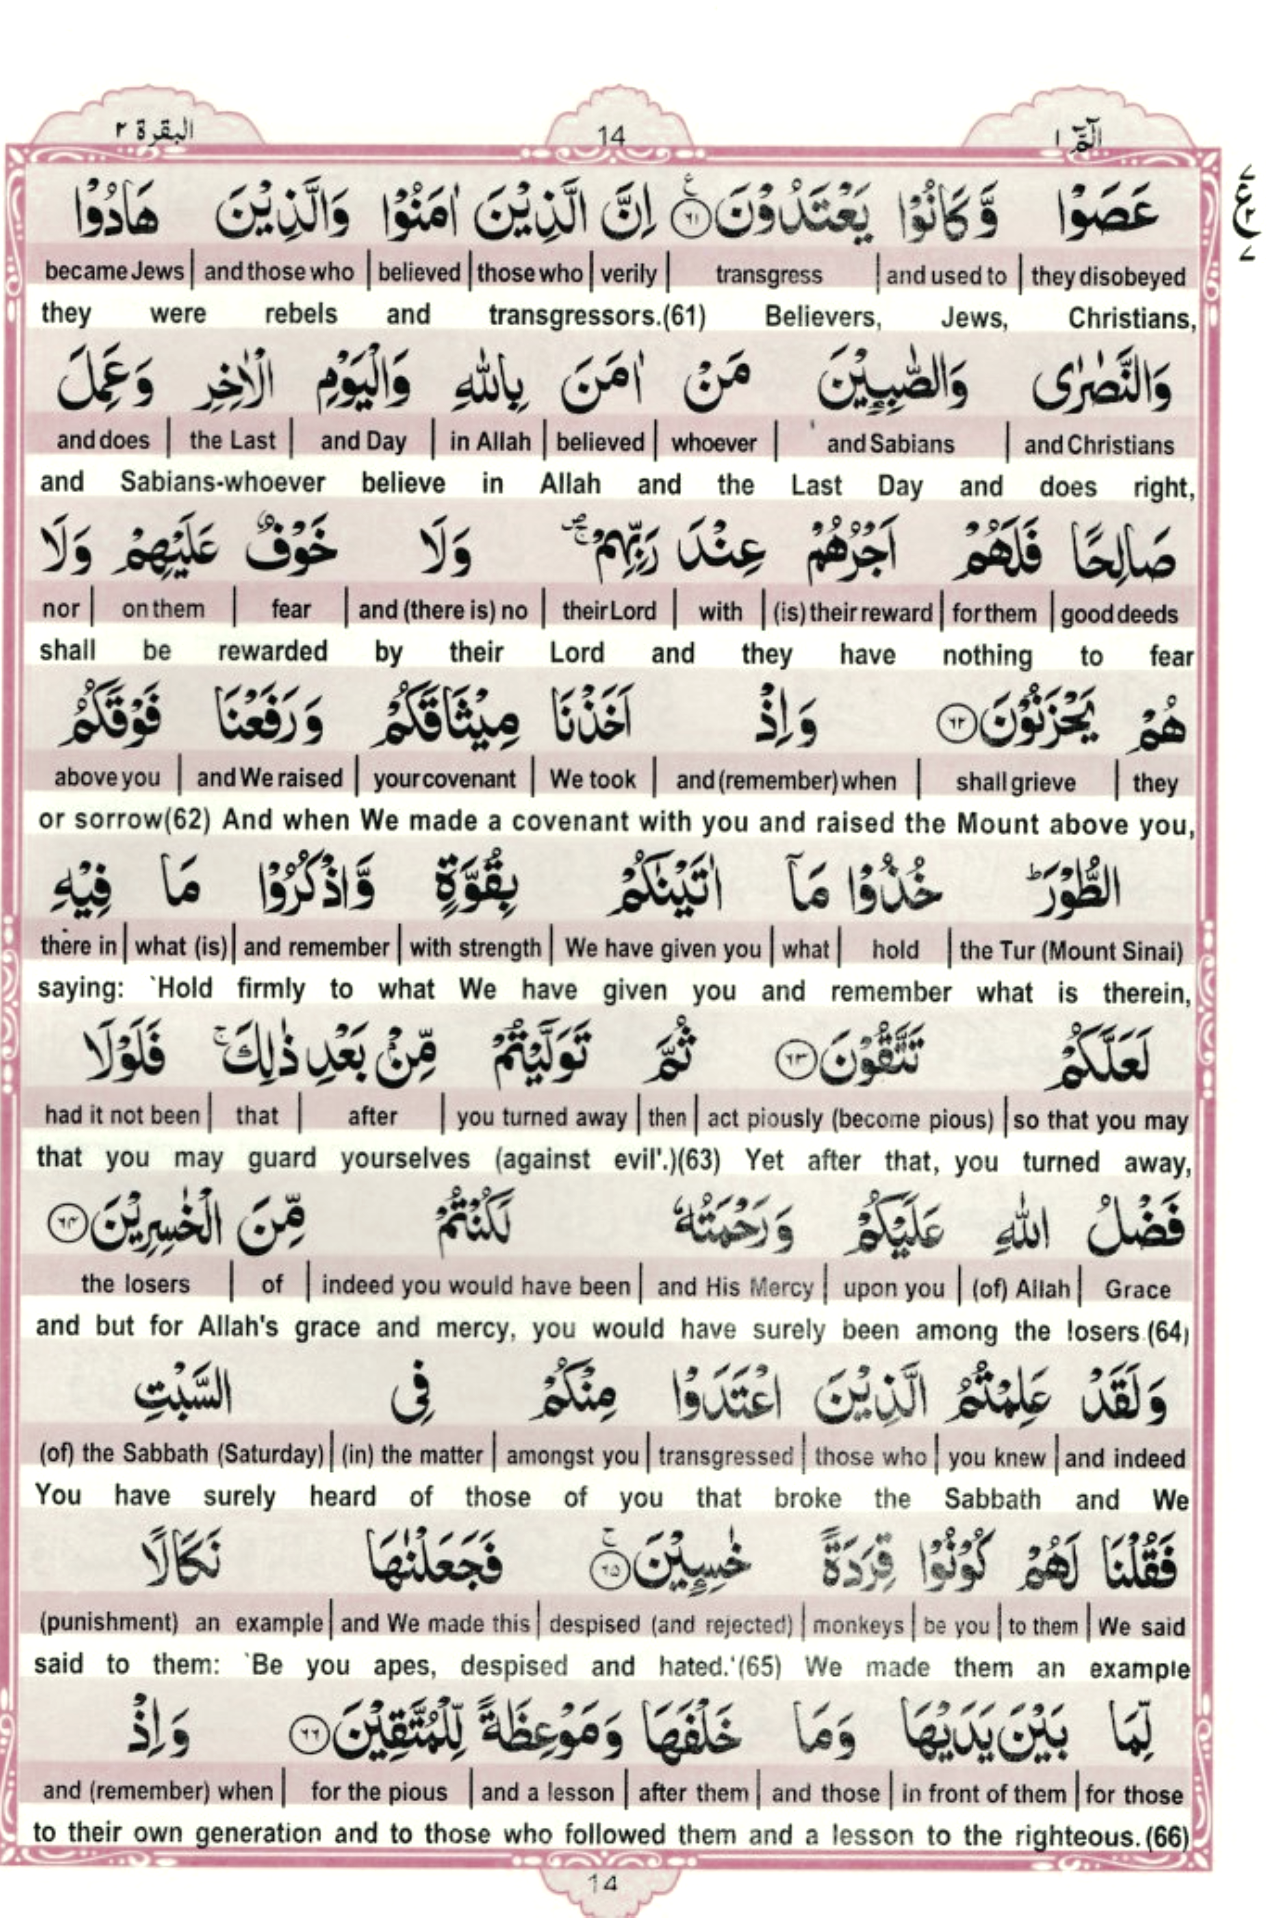 البقرة ٢ 14 الٓمّٓ ١
عَصَوْا وَّكَانُوْا يَعْتَدُوْنَ ۝٦١ اِنَّ الَّذِيْنَ اٰمَنُوْا وَالَّذِيْنَ هَادُوْا
became Jews | and those who | believed | those who | verily | transgress | and used to | they disobeyed
they were rebels and transgressors.(61) Believers, Jews, Christians,
وَالنَّصٰرٰى وَالصّٰبِـِٕيْنَ مَنْ اٰمَنَ بِاللّٰهِ وَالْيَوْمِ الْاٰخِرِ وَعَمِلَ
and does | the Last | and Day | in Allah | believed | whoever | and Sabians | and Christians
and Sabians-whoever believe in Allah and the Last Day and does right,
صَالِحًا فَلَهُمْ اَجْرُهُمْ عِنْدَ رَبِّهِمْ ۖۚ وَلَا خَوْفٌ عَلَيْهِمْ وَلَا
nor | on them | fear | and (there is) no | their Lord | with | (is) their reward | for them | good deeds
shall be rewarded by their Lord and they have nothing to fear
هُمْ يَحْزَنُوْنَ ۝٦٢ وَاِذْ اَخَذْنَا مِيْثَاقَكُمْ وَرَفَعْنَا فَوْقَكُمُ
above you | and We raised | your covenant | We took | and (remember) when | shall grieve | they
or sorrow(62) And when We made a covenant with you and raised the Mount above you,
الطُّوْرَ ؕ خُذُوْا مَآ اٰتَيْنٰكُمْ بِقُوَّةٍ وَّاذْكُرُوْا مَا فِيْهِ
there in | what (is) | and remember | with strength | We have given you | what | hold | the Tur (Mount Sinai)
saying: `Hold firmly to what We have given you and remember what is therein,
لَعَلَّكُمْ تَتَّقُوْنَ ۝٦٣ ثُمَّ تَوَلَّيْتُمْ مِّنْۢ بَعْدِ ذٰلِكَ ۚ فَلَوْلَا
had it not been | that | after | you turned away | then | act piously (become pious) | so that you may
that you may guard yourselves (against evil'.)(63) Yet after that, you turned away,
فَضْلُ اللّٰهِ عَلَيْكُمْ وَرَحْمَتُهٗ لَكُنْتُمْ مِّنَ الْخٰسِرِيْنَ ۝٦٤
the losers | of | indeed you would have been | and His Mercy | upon you | (of) Allah | Grace
and but for Allah's grace and mercy, you would have surely been among the losers.(64)
وَلَقَدْ عَلِمْتُمُ الَّذِيْنَ اعْتَدَوْا مِنْكُمْ فِى السَّبْتِ
(of) the Sabbath (Saturday) | (in) the matter | amongst you | transgressed | those who | you knew | and indeed
You have surely heard of those of you that broke the Sabbath and We
فَقُلْنَا لَهُمْ كُوْنُوْا قِرَدَةً خٰسِـِٕيْنَ ۝٦٥ۚ فَجَعَلْنٰهَا نَكَالًا
(punishment) an example | and We made this | despised (and rejected) | monkeys | be you | to them | We said
said to them: `Be you apes, despised and hated.'(65) We made them an example
لِّمَا بَيْنَ يَدَيْهَا وَمَا خَلْفَهَا وَمَوْعِظَةً لِّلْمُتَّقِيْنَ ۝٦٦ وَاِذْ
and (remember) when | for the pious | and a lesson | after them | and those | in front of them | for those
to their own generation and to those who followed them and a lesson to the righteous.(66)
14